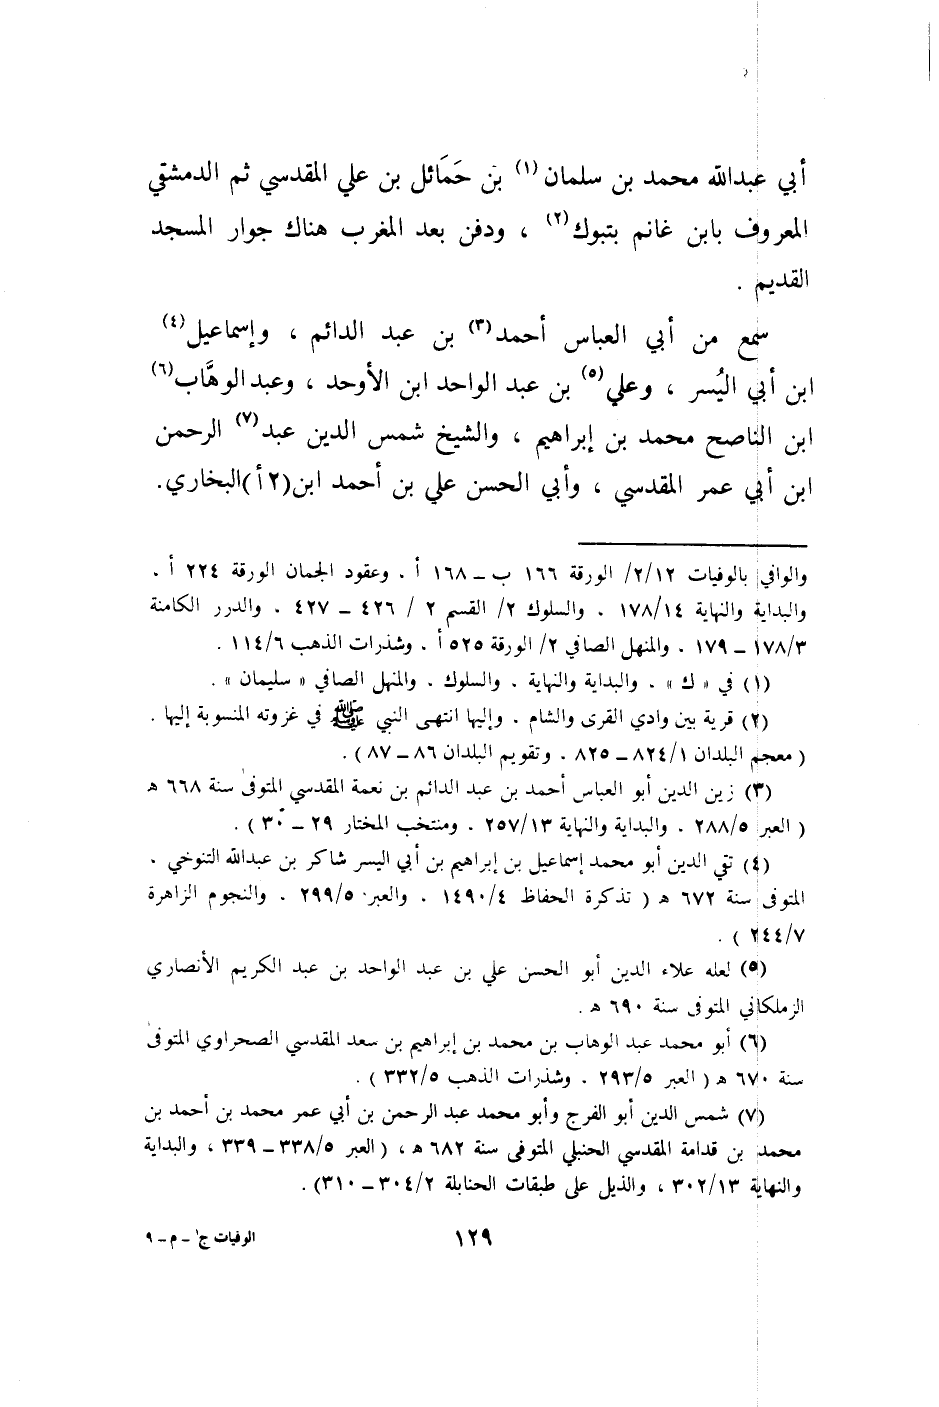 أبي عبدالله محمد بن سلمان(١) بن حَمَائل بن علي المقدسي ثم الدمشقي
المعروف بابن غانم بتبوك(٢) ، ودفن بعد المغرب هناك جوار المسجد
القديم .
سمع من أبي العباس أحمد(٣) بن عبد الدائم ، وإسماعيل(٤)
ابن أبي اليُسر ، وعلي(٥) بن عبد الواحد ابن الأوحد ، وعبد الوهَّاب(٦)
ابن الناصح محمد بن إبراهيم ، والشيخ شمس الدين عبد(٧) الرحمن
ابن أبي عمر المقدسي ، وأبي الحسن علي بن أحمد ابن(٢ أ)البخاري.
والوافي بالوفيات ٢/١٢/ الورقة ١٦٦ ب ــ ١٦٨ أ . وعقود الجمان الورقة ٢٢٤ أ .
والبداية والنهاية ١٧٨/١٤ . والسلوك ٢/ القسم ٢ / ٤٢٦ ــ ٤٢٧ . والدرر الكامنة
١٧٨/٣ ــ ١٧٩ . والمنهل الصافي ٢/ الورقة ٥٢٥ أ . وشذرات الذهب ١١٤/٦ .
(١) في « ك » . والبداية والنهاية . والسلوك . والمنهل الصافي « سليمان » .
(٢) قرية بين وادي القرى والشام . وإليها انتهى النبي ﷺ في غزوته المنسوبة إليها .
( معجم البلدان ٨٢٤/١ ــ ٨٢٥ . وتقويم البلدان ٨٦ ــ ٨٧ ) .
(٣) زين الدين أبو العباس أحمد بن عبد الدائم بن نعمة المقدسي المتوفى سنة ٦٦٨ ه
( العبر ٢٨٨/٥ . والبداية والنهاية ٢٥٧/١٣ . ومنتخب المختار ٢٩ ــ ٣٠ ) .
(٤) تقي الدين أبو محمد إسماعيل بن إبراهيم بن أبي اليسر شاكر بن عبدالله التنوخي .
المتوفى سنة ٦٧٢ ه ( تذكرة الحفاظ ١٤٩٠/٤ . والعبر ٢٩٩/٥ . والنجوم الزاهرة
٢٤٤/٧ ) .
(٥) لعله علاء الدين أبو الحسن علي بن عبد الواحد بن عبد الكريم الأنصاري
الزملكاني المتوفى سنة ٦٩٠ ه .
(٦) أبو محمد عبد الوهاب بن محمد بن إبراهيم بن سعد المقدسي الصحراوي المتوفى
سنة ٦٧٠ ه ( العبر ٢٩٣/٥ . وشذرات الذهب ٣٣٢/٥ ) .
(٧) شمس الدين أبو الفرج وأبو محمد عبد الرحمن بن أبي عمر محمد بن أحمد بن
محمد بن قدامة المقدسي الحنبلي المتوفى سنة ٦٨٢ ه ، ( العبر ٣٣٨/٥ ــ ٣٣٩ ، والبداية
والنهاية ٣٠٢/١٣ ، والذيل على طبقات الحنابلة ٣٠٤/٢ ــ ٣١٠) .
١٢٩
الوفيات ج١ ــ م ــ ٩